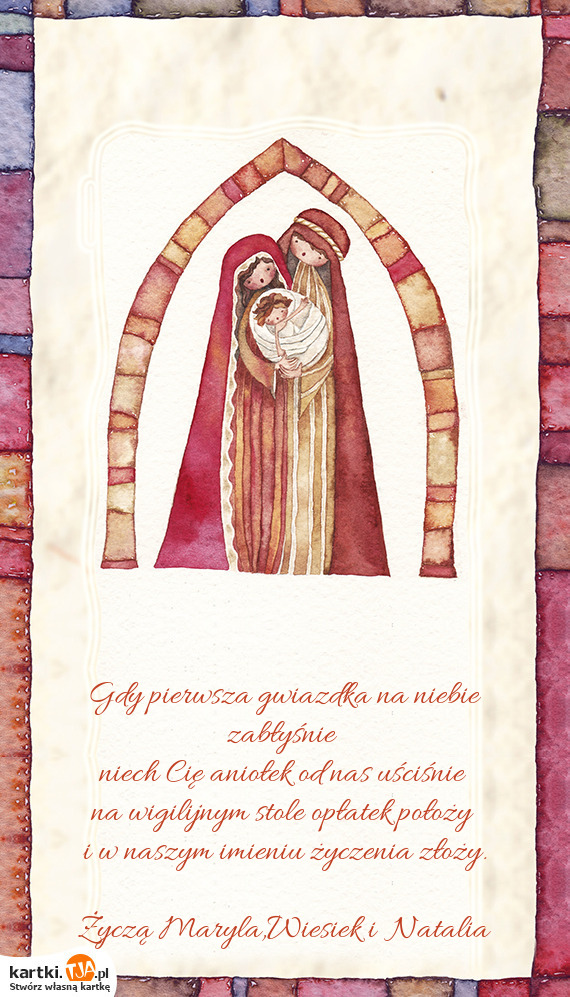 Gdy pierwsza gwiazdka na niebie
zabłyśnie
niech Cię aniołek od nas uściśnie
na wigilijnym stole opłatek położy
i w naszym imieniu życzenia złoży.
Życzą Maryla,Wiesiek i Natalia
kartki.TJA.pl
Stwórz własną kartkę